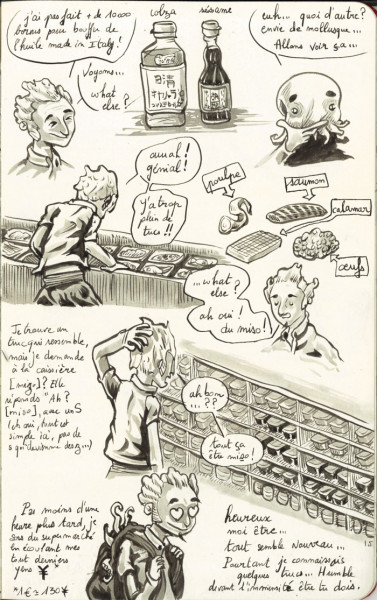 j'ai pas fait + de 10000
bornes pour bouffer de
l'huile made in Italy!
Voyons...
what
else?
colza
sésame
日清
キャノーラ
euh... quoi d'autre?
envie de mollusque...
Allons voir ça...
ouuah!
génial!
Y'a trop
plein de
trucs!!
poulpe
saumon
calamar
œufs
...what
else?
ah oui!
du miso!
Je trouve un
truc qui ressemble,
mais je demande
à la caissière
[mizo]? Elle
réponds "Ah?
[miso], avec un S
(eh oui, tout est
simple ici, pas de
s qui devienne des z...)
ah bon
...??
tout ça
être miso!
Pas moins d'une
heure plus tard, je
sors du supermarché
en écoutant mes
tout derniers
yens ¥
*1€ ≃ 130¥
heureux
moi être...
tout semble nouveau...
Pourtant je connaissais
quelques trucs... Humble
devant l'immensité être tu dois.
15